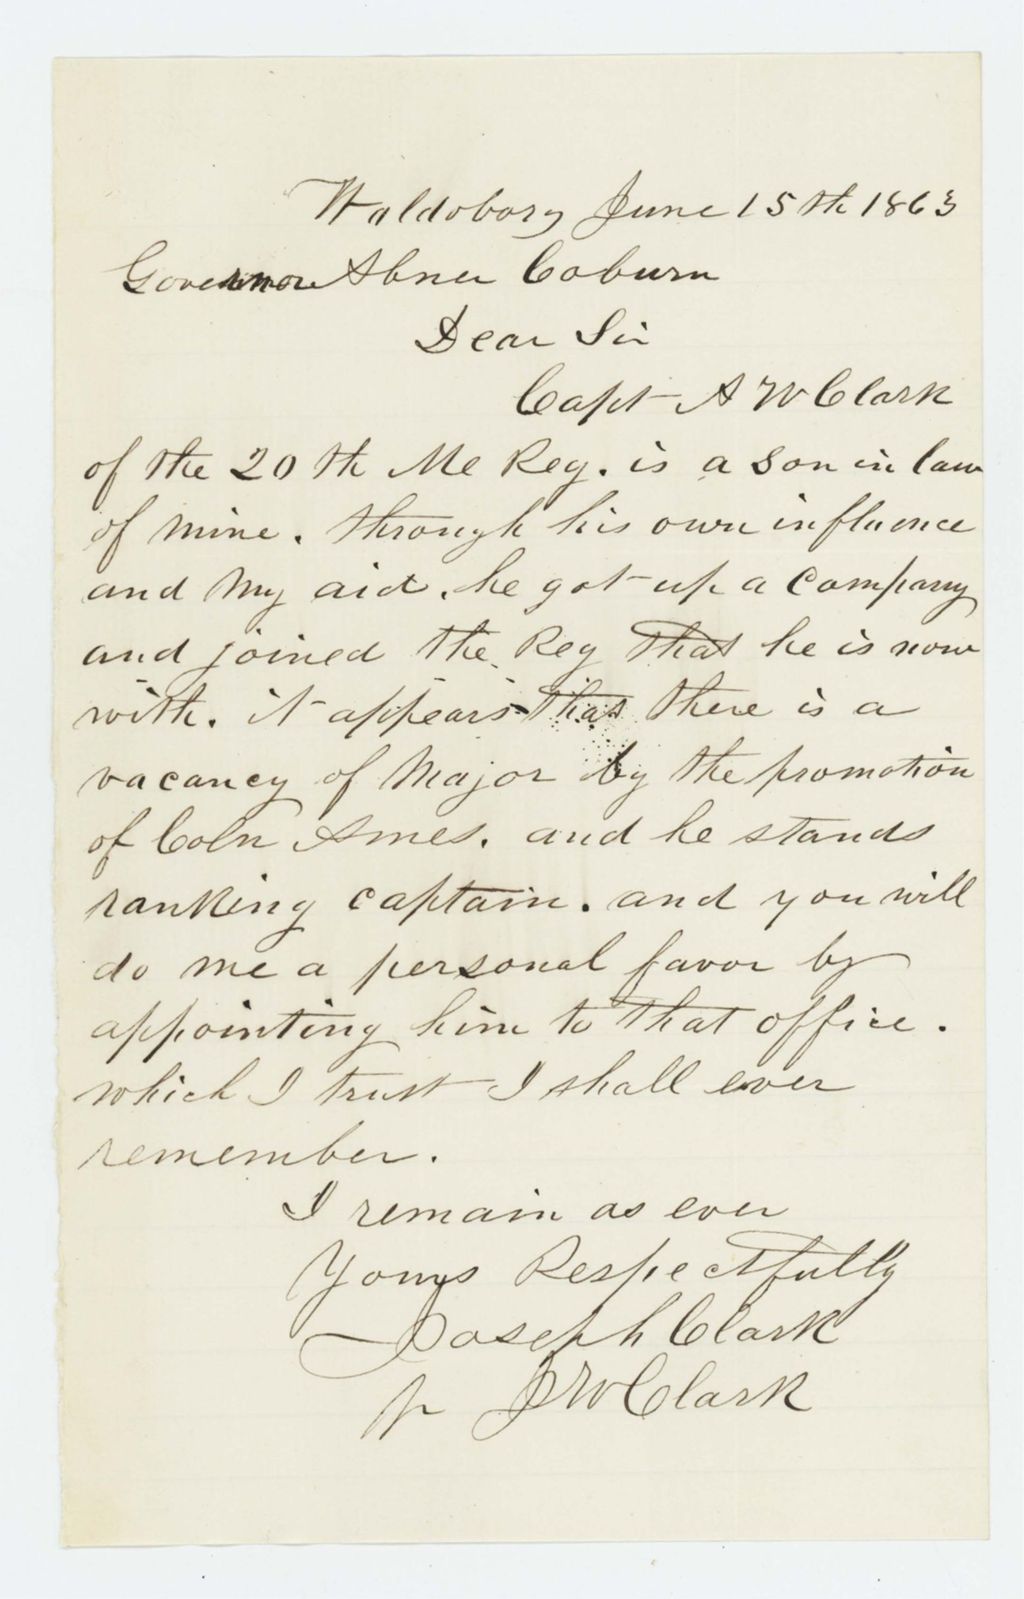 Waldoboro June 15th 1863
Governor Abner Coburn
Dear Sir
Capt A W Clark
of the 20th Me Reg. is a son in law
of mine. through his own influence
and my aid. he got up a company
and joined the Reg that he is now
with. it appears that there is a
vacancy of Major by the promotion
of Coln Ames. and he stands
ranking captain. and you will
do me a personal favor by
appointing him to that office.
which I trust I shall ever
remember.
I remain as ever
Yours Respectfully
Joseph Clark
pr J W Clark